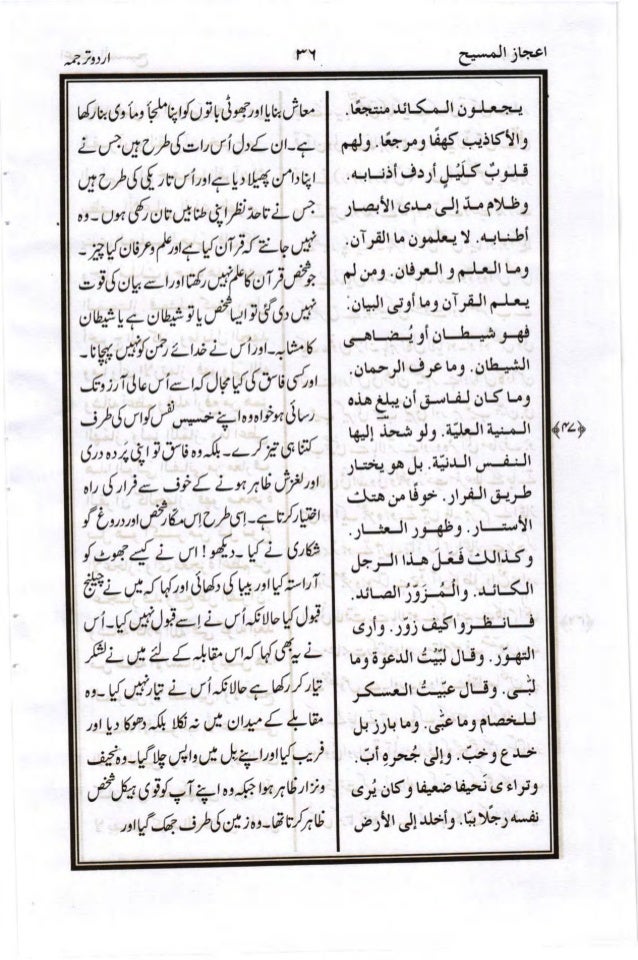 اعجاز المسیح
۳۶
اردو ترجمہ
يجعلون المكائد منتجعًا.
والأكاذيب كهفًا ومرجعًا. ولهم
قلوبٌ كَلَيْلٍ أردف أذنابه.
وظلام مدّ إلى مدى الأبصار
أطنابه. لا يعلمون ما القرآن.
وما العلم و العرفان. ومن لم
يعلم القرآن وما أوتى البيان.
فهو شيطان أو يُضاهى
الشيطان. وما عرف الرحمان.
وما كان لفاسق أن يبلغ هذه
المنية العليّة. ولو شحذ إليها
النفس الدنيّة. بل هو يختار
طريق الفرار. خوفًا من هتك
الأستار. وظهور العثار.
وكذالك فَعَل هذا الرجل
الكائد. والمُزوّر الصائد.
فانظروا كيف زوّر. وأرى
التهوّر. وقال لبّيتُ الدعوة وما
لبّى. وقال عبّيتُ العسكر
للخصام وما عبّى. وما بارز بل
خدع وخبّ. وإلى جُحره أبّ.
وتراءى نَحيفا ضعيفا وكان يُرى
نفسه رجلًا ببّا. وأخلد إلى الأرض
﴿۴۷﴾
معاش بنایا اور جھوٹی باتوں کو اپنا ملجأ و مأوی بنا رکھا
ہے۔ ان کے دل اُس رات کی طرح ہیں جس نے
اپنا دامن پھیلا دیا ہے اور اُس تاریکی کی طرح ہیں
جس نے تاحدّ نظر اپنی طنابیں تان رکھی ہوں۔ وہ
نہیں جانتے کہ قرآن کیا ہے اور علم و عرفان کیا چیز۔
جو شخص قرآن کا علم نہیں رکھتا اور اسے بیان کی قوت
نہیں دی گئی تو ایسا شخص یا تو شیطان ہے یا شیطان
کا مشابہ۔ اور اُس نے خدائے رحمن کو نہیں پہچانا۔
اور کسی فاسق کی کیا مجال کہ اسے اُس عالی آرزو تک
رسائی ہو خواہ وہ اپنے خسیس نفس کو اس کی طرف
کتنا ہی تیز کرے۔ بلکہ وہ فاسق تو اپنی پردہ دری
اور لغزش ظاہر ہونے کے خوف سے فرار کی راہ
اختیار کرتا ہے۔ اِسی طرح اِس مکّار شخص اور دروغ گو
شکاری نے کیا۔ دیکھو! اس نے کیسے جھوٹ کو
آراستہ کیا اور بیبا کی دکھائی اور کہا کہ میں نے چیلنج
قبول کیا حالانکہ اُس نے اِسے قبول نہیں کیا۔ اُس
نے یہ بھی کہا کہ اس مقابلہ کے لئے میں نے لشکر
تیار کر رکھا ہے حالانکہ اُس نے تیار نہیں کیا۔ وہ
مقابلے کے میدان میں نہ نکلا بلکہ دھوکا دیا اور
فریب کیا اور اپنے بِل میں واپس چلا گیا۔ وہ نحیف
و نزار ظاہر ہوا جبکہ وہ اپنے آپ کو قوی ہیکل شخص
ظاہر کرتا تھا۔ وہ زمین کی طرف جھک گیا اور